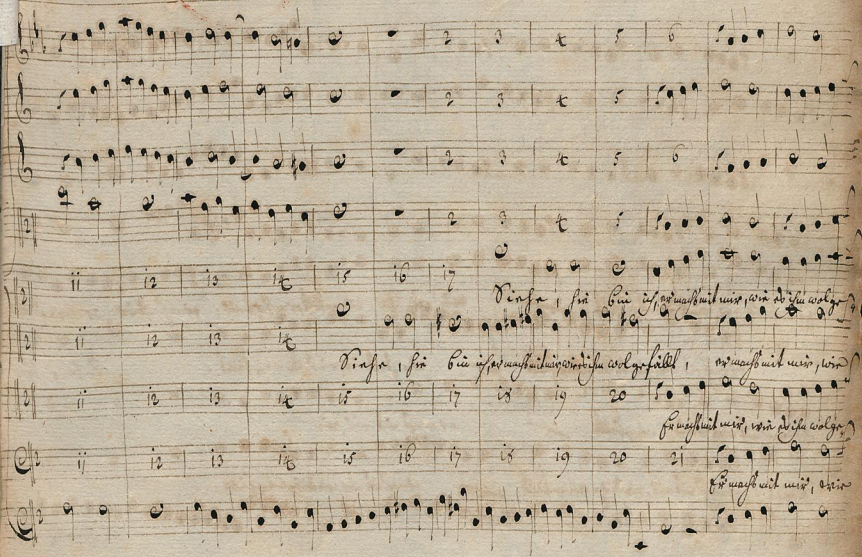 2 3 4 5 6
2 3 4 5
2 3 4 5 6
2 3 4 5
11 12 13 14 15 16 17
Siehe, hie bin ich, er machs mit mir, wie es ihm wolge
11 12 13 14
Siehe, hie bin ich, er machs mit mir wie es ihm wolgefällt, er machs mit mir, wie
11 12 13 14 15 16 17 18 19 20
Er machs mit mir, wie es ihm wolge
11 12 13 14 15 16 17 18 19 20 21
Er machs mit mir, wie